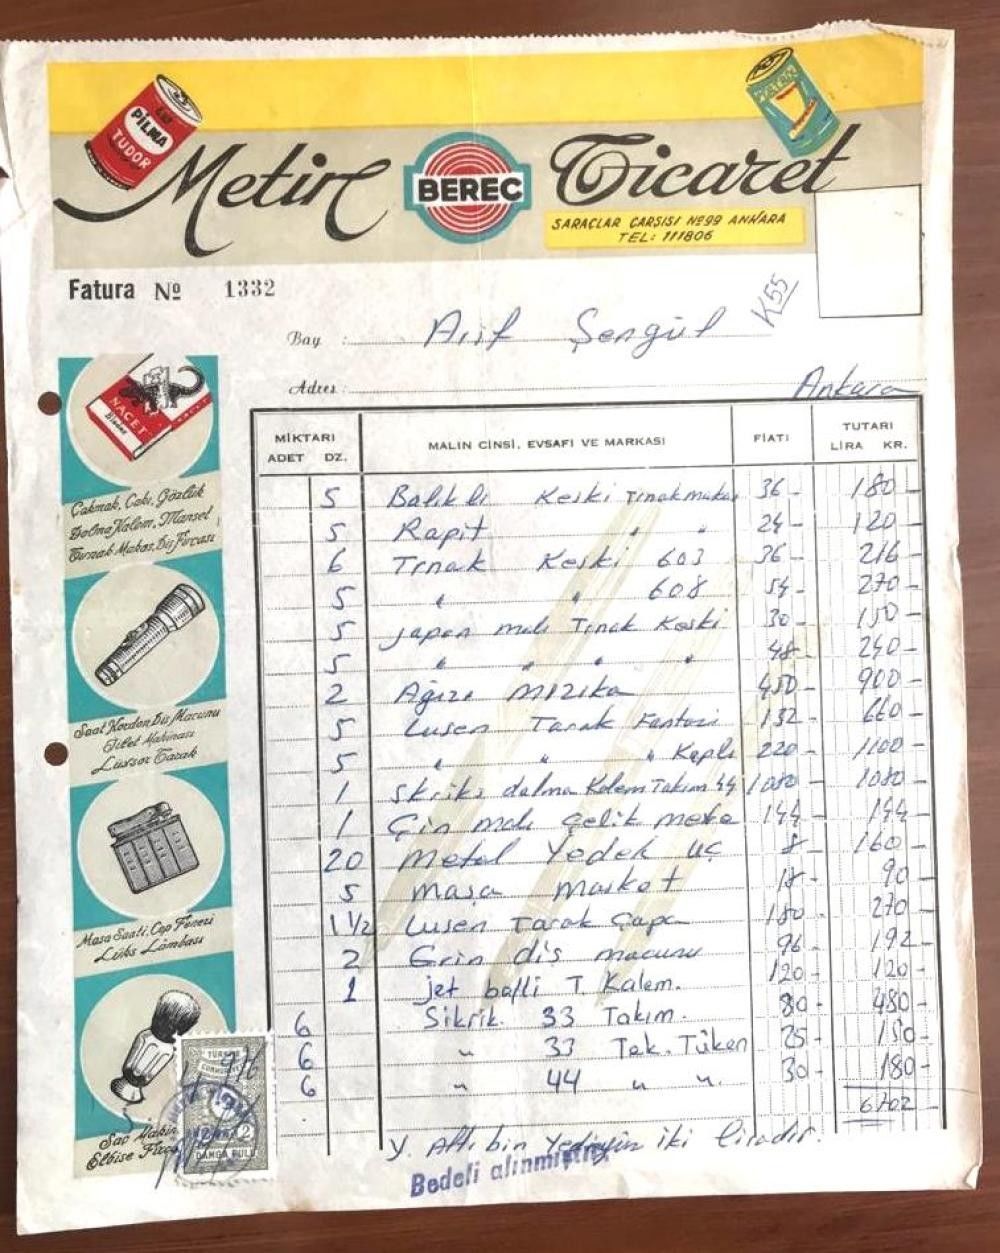 Lüx PİLMA TUDOR
Metin BEREC Ticaret
SARAÇLAR ÇARŞISI Nº 99 ANKARA
TEL: 111806
Fatura Nº 1332
K55
Bay : Arif Şengül
Adres : Ankara
MİKTARI MALIN CİNSİ, EVSAFI VE MARKASI FİATI TUTARI
ADET DZ. LİRA KR.
5 Balıklı Keski Tırnakmakas 36- 180-
5 Rapit " " 24- 120-
6 Tırnak Keski 603 36- 216-
5 " " 608 54- 270-
5 japan malı Tırnak Keski 30- 150-
5 " " " " 48- 240-
2 Ağızı mızıka 450- 900-
5 Lusen Tarak Fantazi 132- 660-
5 " " " Kaplı 220- 1100-
1 Skriks dolma Kalem Takım 44 1080- 1080-
1 Çin malı çelik 144- 144-
20 metal Yedek uç 8- 160-
5 masa 18- 90-
1 1/2 Lusen Tarak 180- 270-
2 diş macunu 96- 192-
1 jet balli T. Kalem. 120- 120-
6 Sikrik. 33 Takım. 80- 480-
6 " 33 Tek. Tüken 25- 150-
6 " 44 " " 30- 180-
6702
Y. Altıbin Yediyüz iki liradır.
Bedeli alınmıştır
NACET
Blades
NACET
Çakmak, Çakı, Gözlük
Dolma Kalem, Mansel
Tırnak Makas, Diş Fırçası
Saat Kordon Diş Macunu
Jilet Makinası
Lüxsor Tarak
Masa Saati, Cep Feneri
Lüks Lâmbası
Saç Makin
Elbise Fırça
TÜRKİYE
CUMHURİYETİ
2
DAMGA PULU